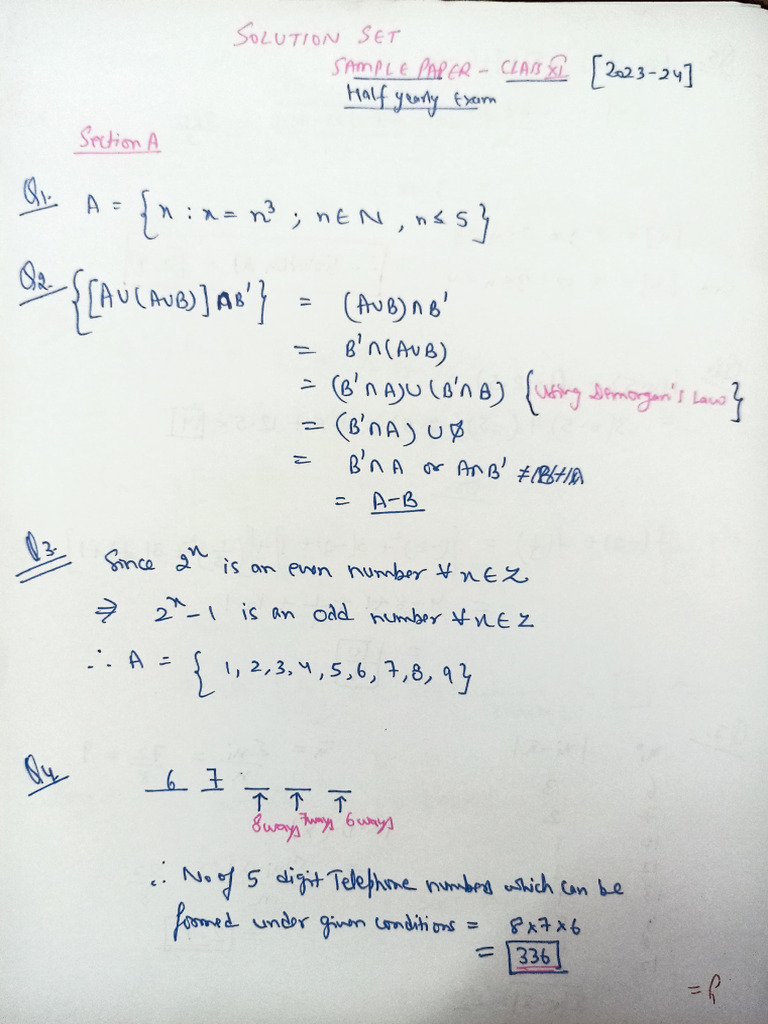 SOLUTION SET
SAMPLE PAPER - CLASS XI [2023-24]
Half yearly Exam
Section A
Q1. A = {x : x = n³ ; n∈N , n≤5}
Q2. {[A∪(A∪B)]∩B'} = (A∪B)∩B'
= B'∩(A∪B)
= (B'∩A)∪(B'∩B) {Using Demorgan's Law}
= (B'∩A) ∪ ∅
= B'∩A or A∩B'
= A-B
Q3. Since 2ˣ is an even number ∀ x∈Z
⇒ 2ˣ-1 is an odd number ∀ x∈Z
∴ A = {1, 2, 3, 4, 5, 6, 7, 8, 9}
Q4. 6 7 _ _ _
↑ ↑ ↑
8ways 7ways 6ways
∴ No. of 5 digit Telephone numbers which can be
formed under given conditions = 8×7×6
= 336